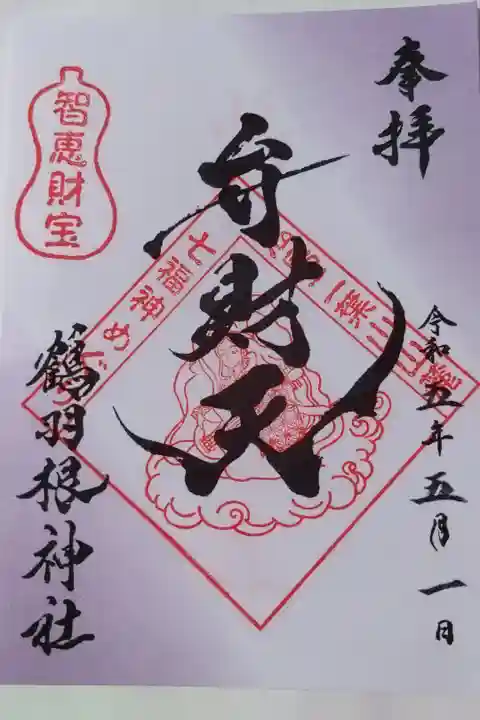 奉拝
令和五年五月一日
弁財天
七福神めぐ
智恵財宝
鶴羽根神社